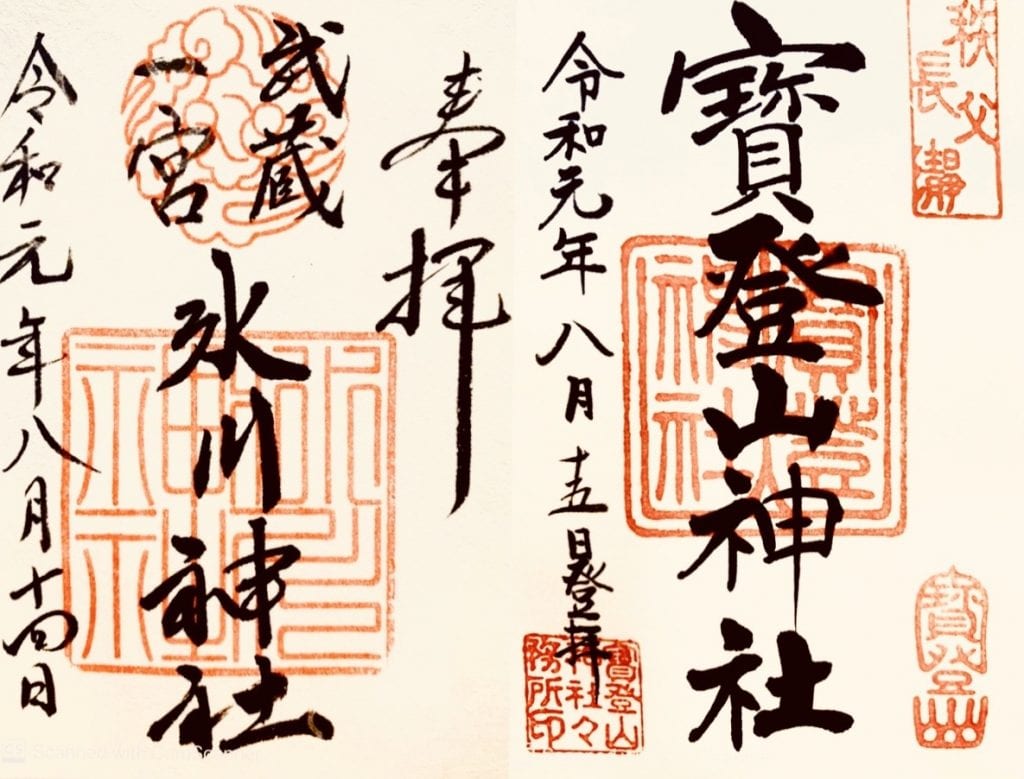 奉拝
武蔵
一宮
氷川神社
令和元年八月十四日
秩父
長瀞
寳登山
寳登山神社
令和元年八月十五日登拝
寳登山
神社々
務所印
Scanned with CamScanner